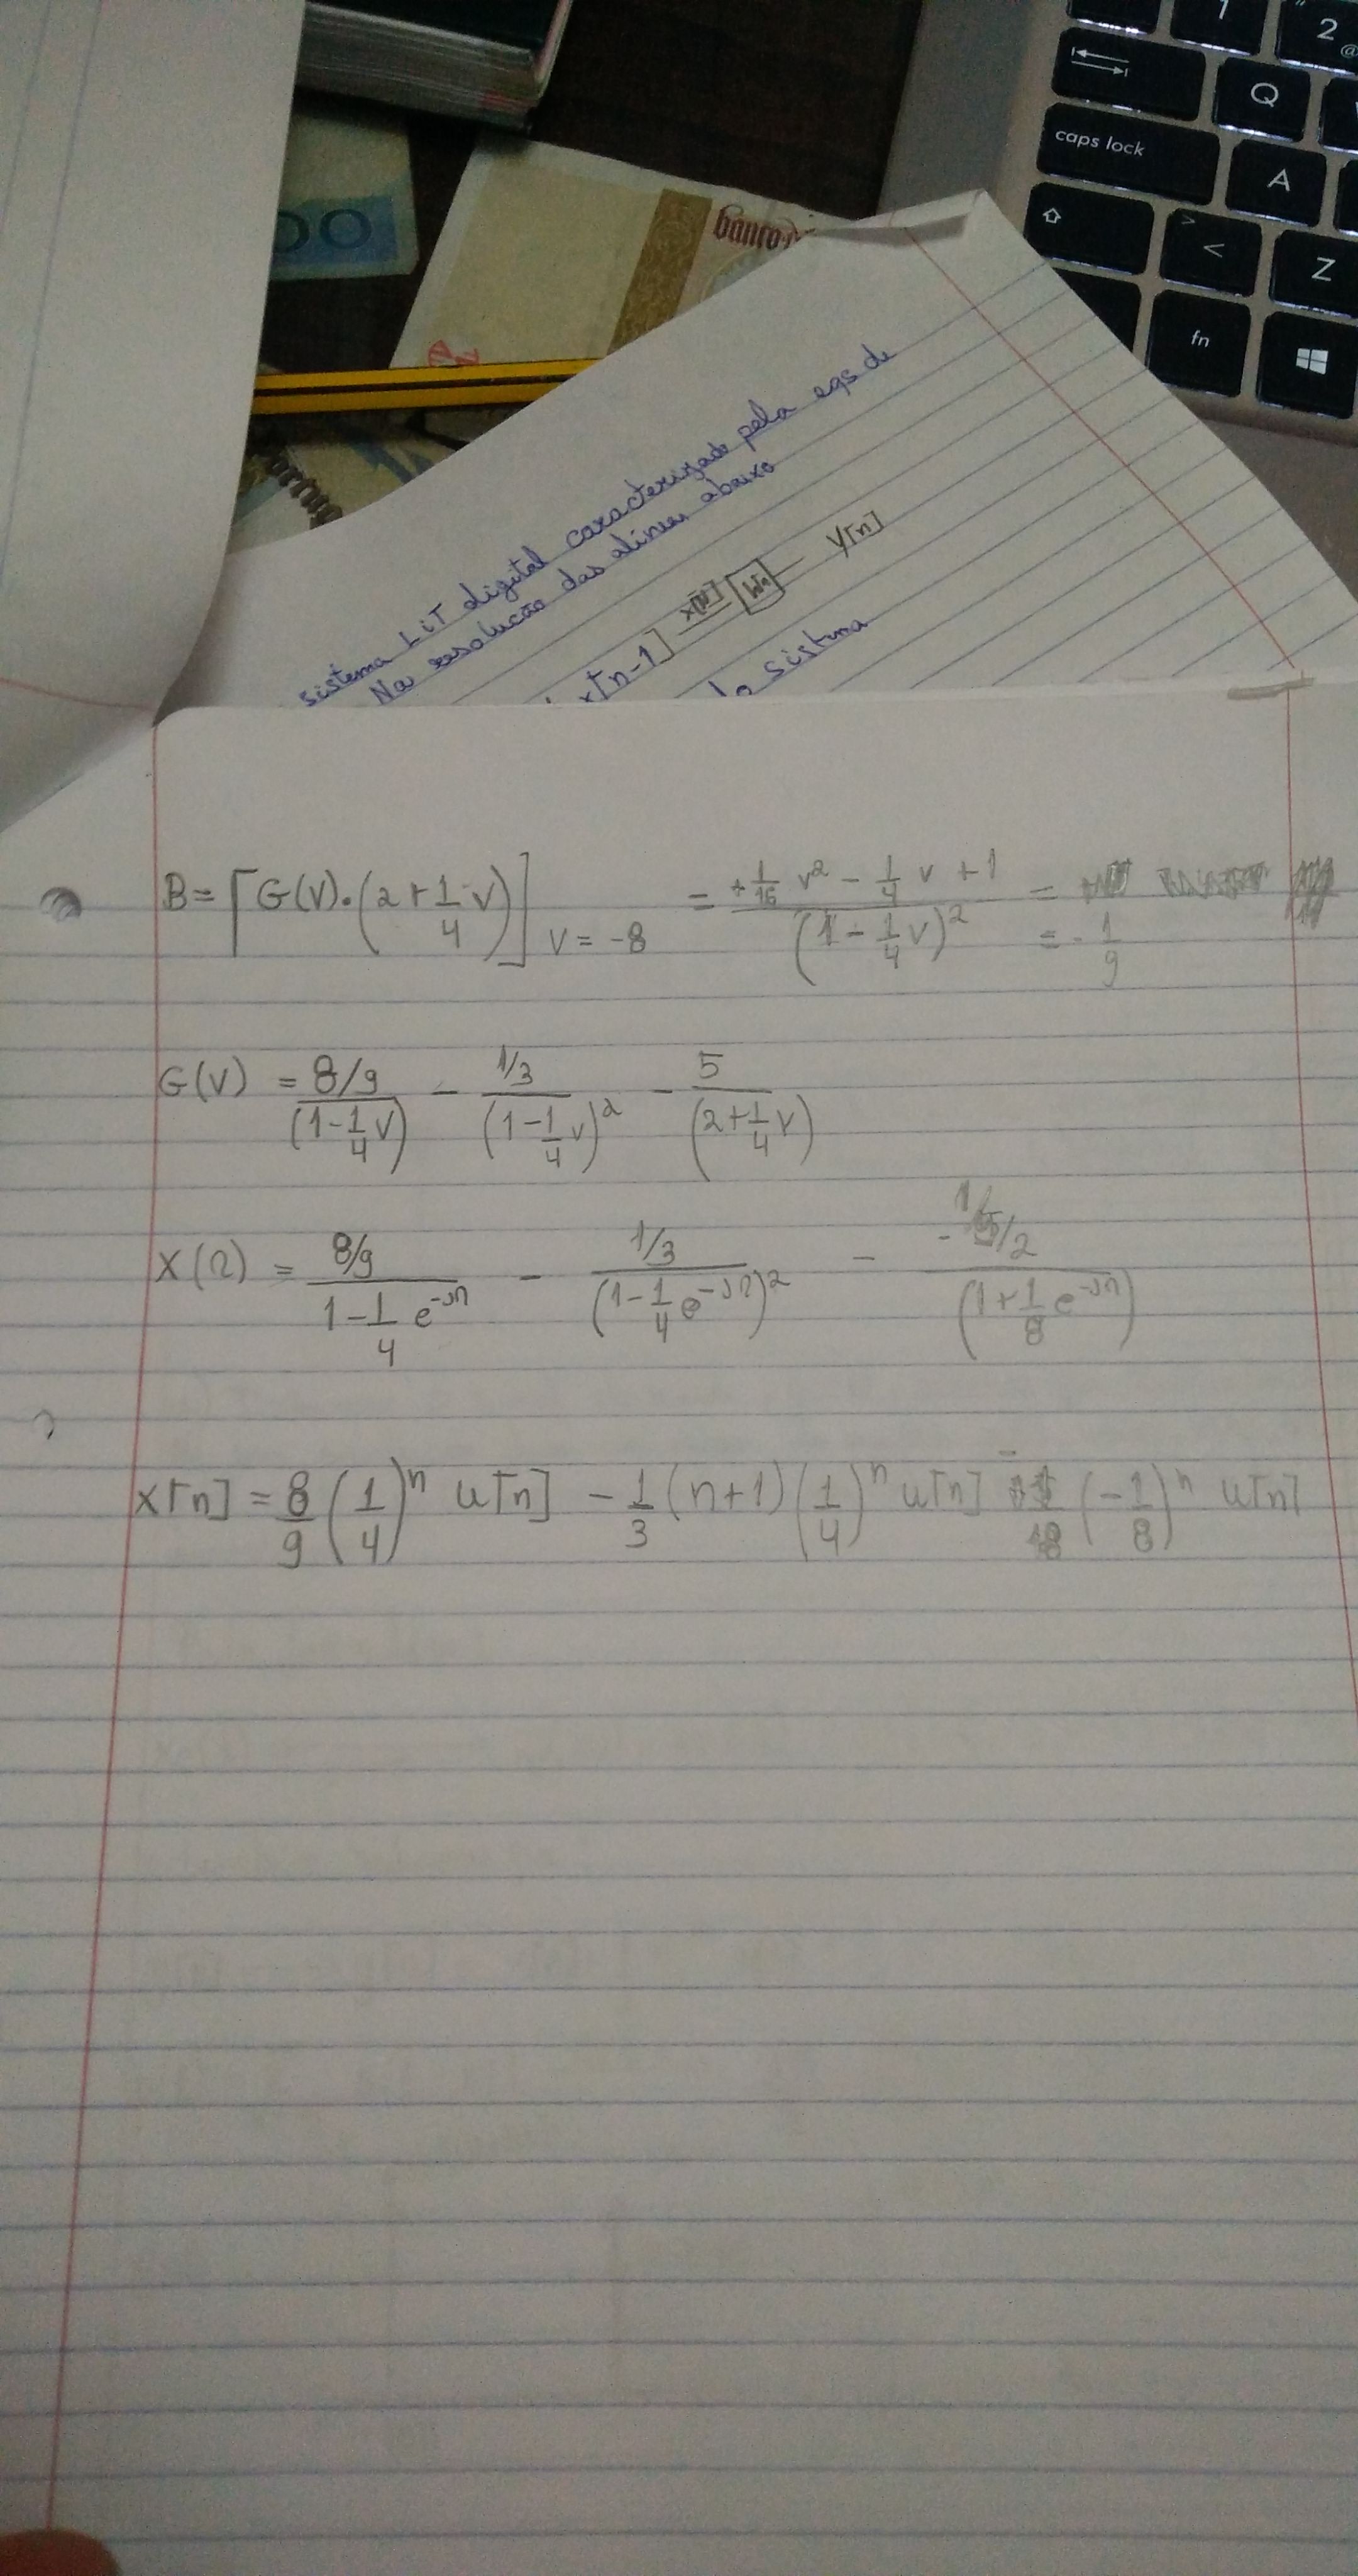 1
2
@
Q
caps lock
A
<
Z
fn
00
banco
sistema LiT digital caracterizado pela eqs de
Na resolução das alineas abaixo
x[n-1] x[n] y[n]
sistema
B = [G(v).(2+1/4 v)] v = -8 = +1/16 v² - 1/4 v + 1 / (1 - 1/4 v)² = = - 1/9
G(v) = 8/9 / (1 - 1/4 v) - 1/3 / (1 - 1/4 v)² - 5 / (2 + 1/4 v)
X(Ω) = 8/9 / 1 - 1/4 e^-jΩ - 1/3 / (1 - 1/4 e^-jΩ)² - / (1 + 1/8 e^-jΩ)
x[n] = 8/9 (1/4)^n u[n] - 1/3 (n+1) (1/4)^n u[n] - (-1/8)^n u[n]